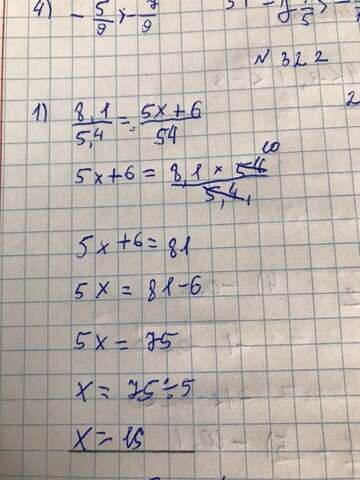 4) - 5/9 > - 7/9
N 322
1) 8,1/5,4 = 5x+6/54
5x+6 = 8,1 × 54/5,4 10 1
5x+6=81
5x = 81-6
5x = 75
x = 75÷5
x = 15